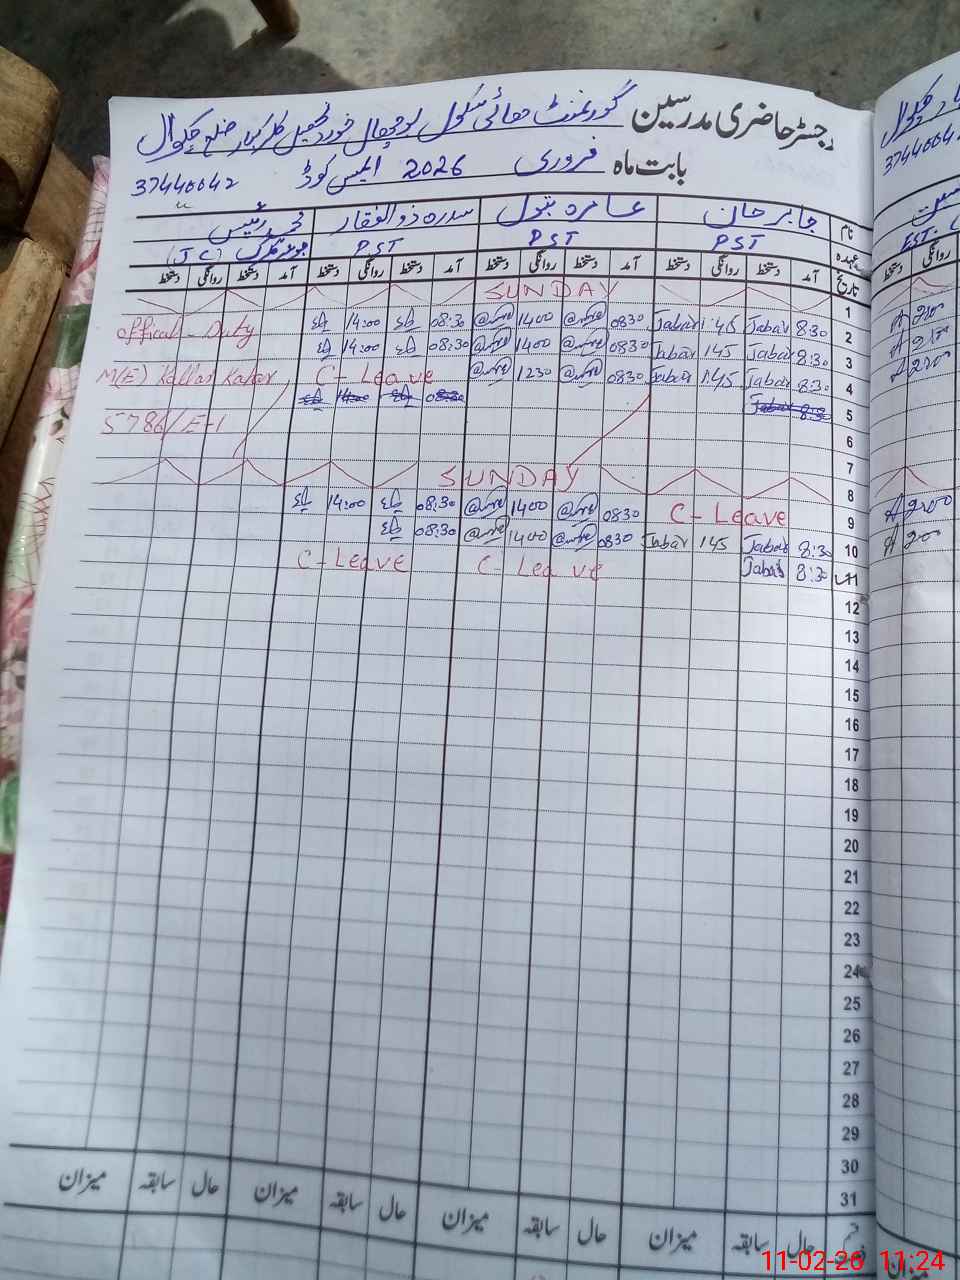 رجسٹر حاضری مدرسین گورنمنٹ ہائی سکول بوچھال خورد تحصیل کلرکہار ضلع چکوال
بابت ماہ فروری 2026 ایمس کوڈ 37440042
نام جابر خان عامرہ بتول سدرہ ذوالفقار محمد رئیس
عہدہ PST PST PST جونیئر کلرک (J C)
تاریخ آمد دستخط روانگی دستخط آمد دستخط روانگی دستخط آمد دستخط روانگی دستخط آمد دستخط روانگی دستخط
1 SUNDAY
2 8:30 Jabar 1:45 Jabar 0830 1400 08:30 14:00 offical - Duty
3 8:30 Jabar 145 Jabar 0830 1400 08:30 14:00
4 8:30 Jabar 1:45 Jabar 0830 1230 C- Leave M(E) Kallar Kahar
5 8:30 Jabar 08:30 14:00
5786/E-1
6
7
8 SUNDAY
9 C- Leave 0830 1400 08:30 14:00
10 8:30 Jabar 145 Jabar 0830 1400 08:30
11 8:30 Jabar C- Leave C- Leave
12
13
14
15
16
17
18
19
20
21
22
23
24
25
26
27
28
29
30
31
حال سابقہ میزان حال سابقہ میزان حال سابقہ میزان حال سابقہ میزان
11-02-26 11:24